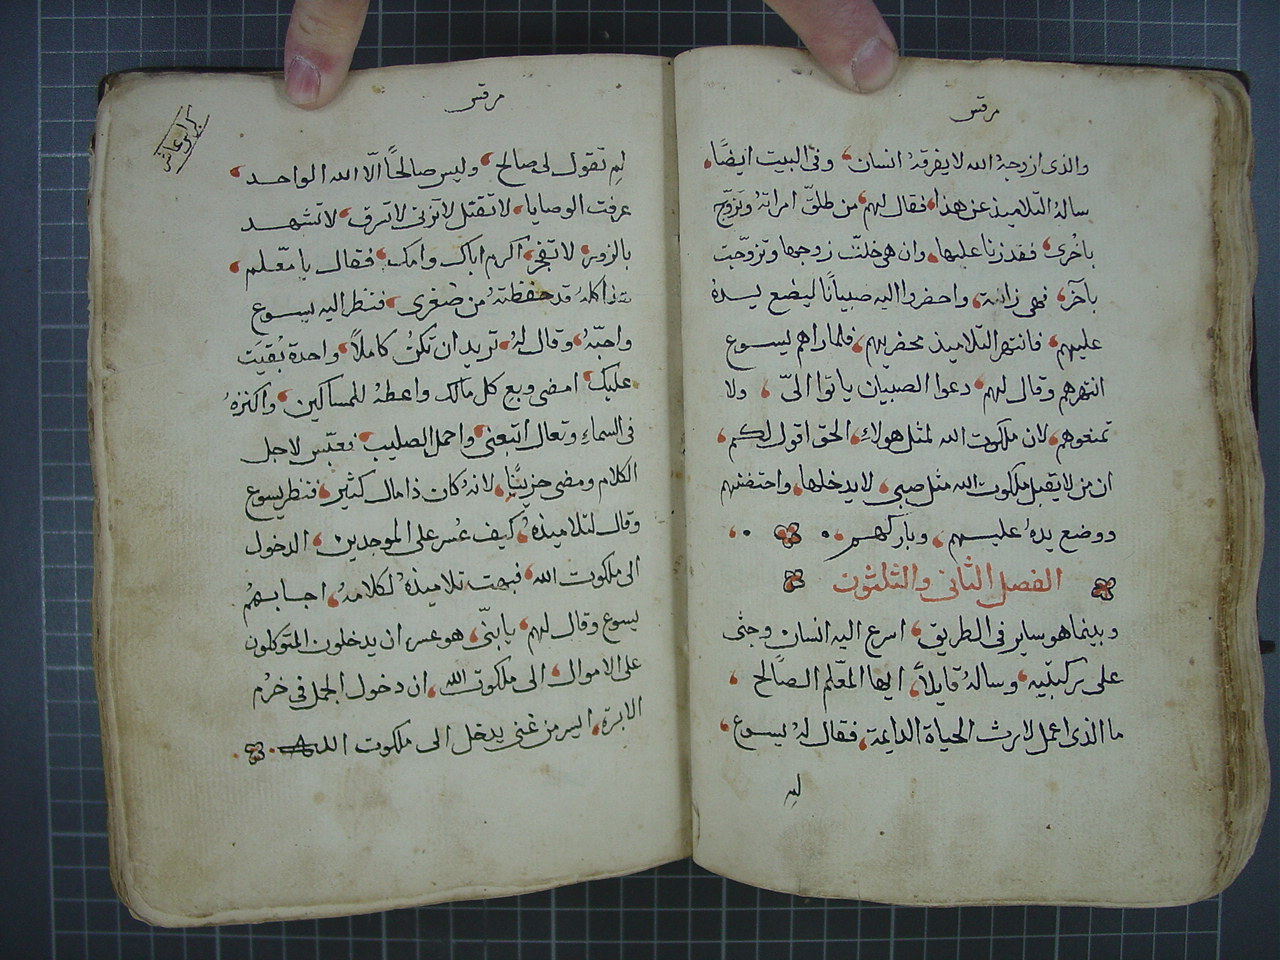 مرقس
والذى ازوجهُ الله لا يفرقهُ انسان، وفى البيت ايضًا،
سالهُ التلاميذ عن هذا، فقال لهم، من طلّق امراتهُ وتزوّج
باخرى، فقد زنا عليها، وان هى خلّت زوجها وتزوّجت
باخر، فهى زانية، واحضروا اليه صبيانًا ليضع يدهُ
عليهم، فانتهر التلاميذ محضريهم، فلما راهم يسوع
انتهرهم وقال لهم، دعوا الصبيان ياتوا الىّ، ولا
تمنعوهم، لان ملكوت الله لمثل هولاء، الحق اقول لكم،
ان من لا يقبل ملكوت الله مثل صبى، لا يدخلها، واحتضنهم
ووضع يدهُ عليهم، وباركهم
الفصل الثانى والثلثون
وبينما هو ساير فى الطريق، اسرع اليه انسان وجثى
على ركبتيه، وسالهُ قايلاً، ايها المعّلم الصالح،
ما الذى اعمل لارث الحياة الدايمة، فقال لهُ يسوع،
لِمِ
مرقس
لِمِ تقول لى صالح، وليس صالحًا الّا الله الواحد،
عرفت الوصايا، لا تقتل لا تزنى لا تسرق، لا تشهد
بالزور، لا تفجر، اكرم اباك وامك، فقال يا معّلم،
هذا كلهُ قد حفظتهُ من صغرى، فنظر اليه يسوع
واحبّهُ، وقال لهُ، تريد ان تكُن كاملاً، واحدة بُقيَت
عليك، امضى وبع كل مالك واعطهُ للمساكين، واكنزهُ
فى السماء وتعال اتبعنى، واحمل الصليب، فعبّس لاجل
الكلام ومضى حزينًا، لانهُ كان ذا مال كثير، فنظر يسوع
وقال لتلاميذهُ، كيف عُسر على الموجدين، الدخول
الى ملكوت الله، فبهت تلاميذهُ لكلامهُ، اجابهُم
يسوع وقال لهم، يا بنىّ، هو عسر، ان يدخلون المتوكلون
على الاموال، الى ملكوت الله، ان دخول الجمل فى خرُم
الابرة، ايسر من غنى يدخل الى ملكوت الله